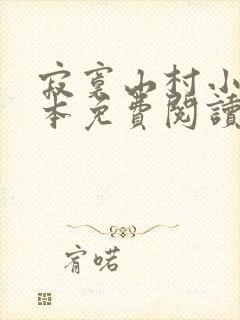 寂寞山村小
本免費閱讀
宥喏